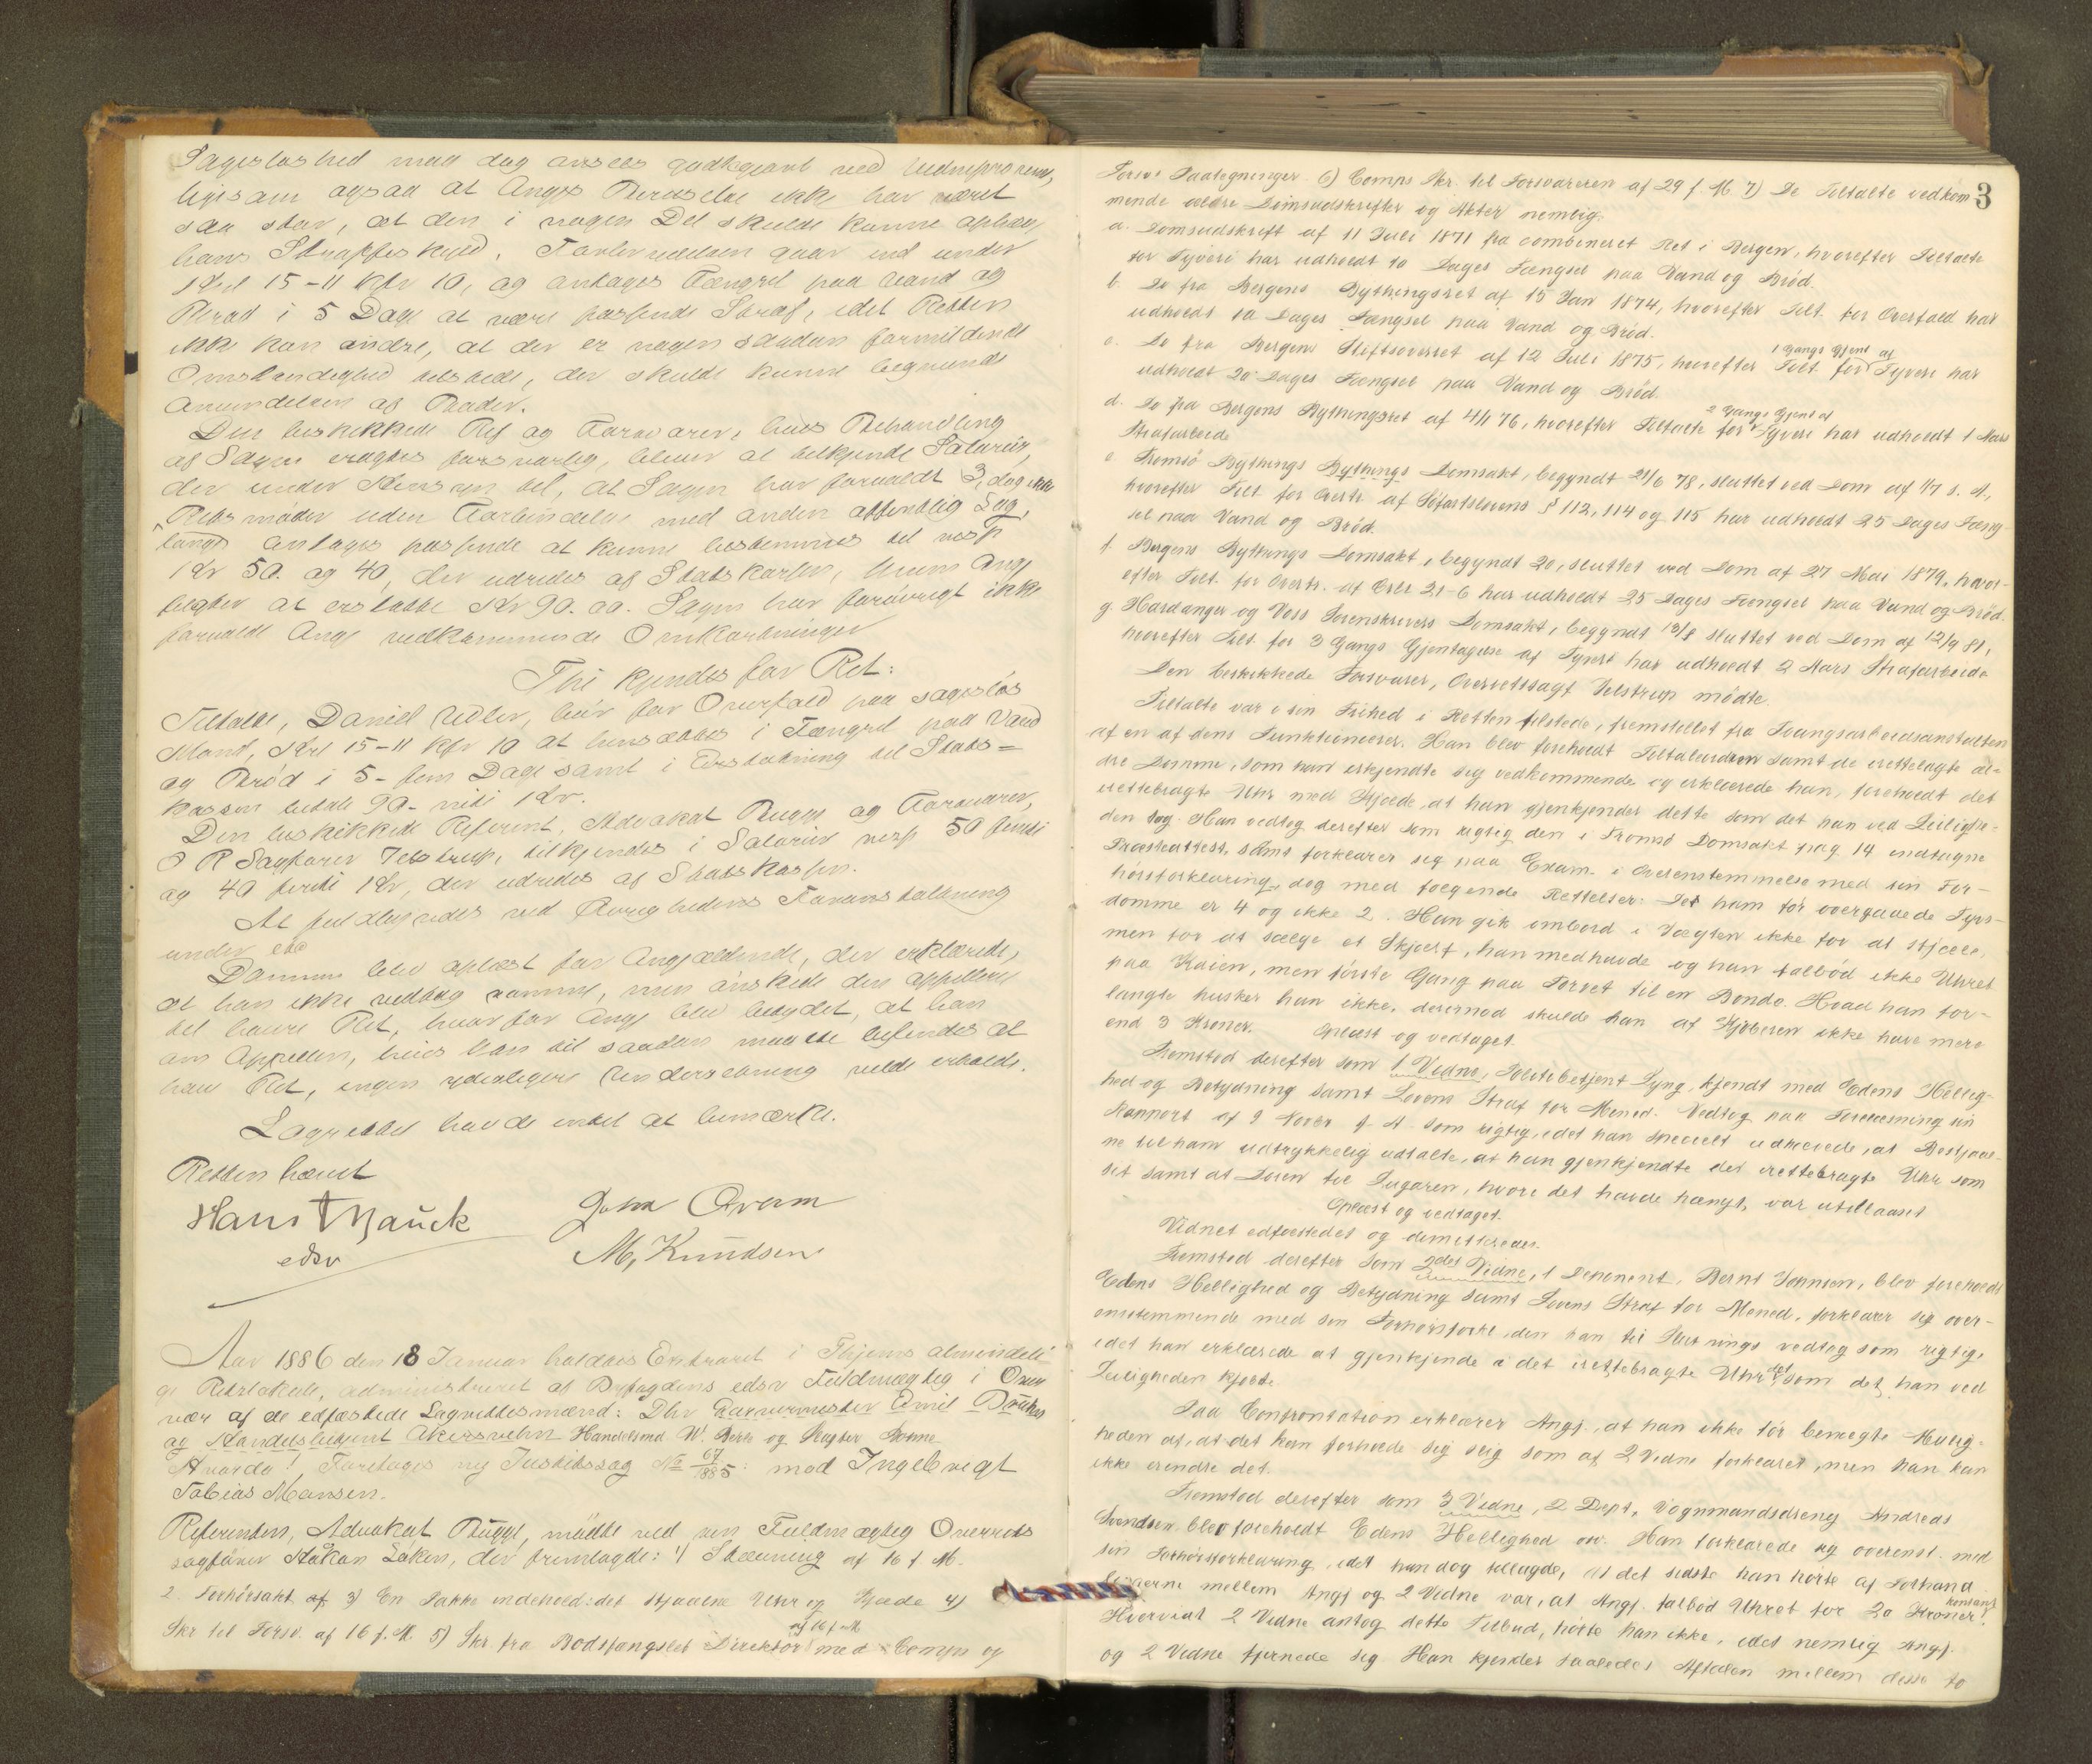 Sagesløshed maa dog ansees godtgjort ved Vidneprovene,
ligesom ogsaa at Angjs Beruselse ikke har været
saa stor, at den i nogen Del skulde kunne ophæve
hans Straffeskyld. Forbrydelsen gaar ind under
Krl 15-11 kfr 10, og antages Fængsel paa Vand og
Brød i 5 Dage at være passende Straf, idet Retten
ikke kan andre, at der er nogen saadan formildende
Omstændighed tilstede, der skulde kunne begrunde
Anvendelsen af Bøder.
Den beskikkede Ref og Forsvarer, hvis Behandling
af Sagen eragtes forsvarlig, bliver at tilkjende Salarier,
der under Hensyn til, at Sagen har forvoldt 3, dog ikke
lange Retsmøder uden Forbindelse med anden offentlig Sag,
antages passende at kunne bestemmes til resp
Kr 50. og 40, der udredes af Statskassen, hvem Angj
tilpligter at erstatte Kr 90.00. Sagen har forøvrigt ikke
forvoldt Angj vedkommende Omkostninger
Thi kjendes for Ret:
Tiltalte, Daniel Udler, bør for Overfald paa sagesløs
Mand, Krl 15-11 kfr 10 at hensættes i Fængsel paa Vand
og Brød i 5 - fem Dage samt i Erstatning til Stats=
kassen betale 90 - nitti Kr.
Den beskikkede Referent, Advokat Bugge og Forsvarer,
O R Sagfører Jelstrup, tilkjendes i Salarier resp 50 femti
og 40 firti Kr, der udredes af Statskassen.
At fuldbyrdes ved Øvrighedens Foranstaltning
under
Dommen blev oplæst for Angjældende, der erklærede,
at han ikke vedtog samme, men ønskede den appelleret
til høiere Ret, hvorfor Angj blev betydet, at han
om Appellen, hvis han til saadan maatte befindes at
have Ret, ingen yderligere Underretning vilde erholde.
Lagrettet havde intet at bemærke.
Retten hævet
Hans Mauck
edsv
John Overn
M. Knudsen
Aar 1886 den 18 Januar holdtes Extraret i Thjems almindeli
ge Retslokale, administreret af Byfogdens edsv Fuldmægtig i Over
vær af de edfæstede Lagrettesmænd: Dhr Garvermester Emil
og Handelsbetjent Akersvehn Handelsmd W. og Bonne
Hvorda! Foretoges ny Justitssag No 67/1885: mod Ingebregt
Tobias Mansen.
Referenten, Advokat Bugge, mødte ved sin Fuldmægtig Overrets
sagfører Håkon Løken, der fremlagde: 1) Stævning af 16 f M.
2 Forhørsakt af 3) En Pakke indehold: det stjaalne Uhr og Kjæde 4)
Skr til Forsv. af 16 f. M. 5) Skr. fra Bodsfængslets Direktør af 16 f M med Comps og
3
Forsvs Paategninger. 6) Comps Skr. til Forsvareren af 29 f. M. 7) De Tiltalte vedkom
mende ældre Domsudskrifter og Akter nemlig:
a. Domsudskrift af 11 Juli 1871 fra combineret Ret i Bergen, hvorefter Tiltalte
for Tyveri har udholdt 10 Dages Fængsel paa Vand og Brød.
b. Do fra Bergens Bythingsret af 15 Jan 1874, hvorefter Tilt. for Overfald har
udholdt 10 Dages Fængsel paa Vand og Brød.
c. Do fra Bergens Stiftsoverret af 12 Juli 1875, hvorefter Tilt. for 1 Gangs Gjent af Tyveri har
udholdt 20 Dages Fængsel paa Vand og Brød.
d. Do fra Bergens Bythingsret af 4/11 76, hvorefter Tiltalte for 2 Gangs Gjent af Tyveri har udholdt 1 Aars
Strafarbeide
e. Tromsø Bythings Bythings Domsakt, begyndt 21/6 78, sluttet ved Dom af 1/7 s. A.,
hvorefter Tilt for Overtr af Søfartslovens § 112, 114 og 115 har udholdt 25 Dages Fæng-
sel paa Vand og Brød.
f. Bergens Bythings Domsakt, begyndt 20, sluttet ved Dom af 27 Mai 1879, hvor-
efter Tilt. for Overtr. af Crlr 21-6 har udholdt 25 Dages Fængsel paa Vand og Brød.
g. Hardanger og Voss Sorenskrivers Domsakt, begyndt 13/8 sluttet ved Dom af 12/9 81,
hvorefter Tilt. for 3 Gangs Gjentagelse af Tyveri har udholdt 2 Aars Strafarbeide
Den beskikkede Forsvarer, Overretssagf Jelstrup mødte.
Tiltalte var i sin Frihed i Retten tilstede, fremstillet fra Tvangsarbeidsanstalten
af en af dens Funktionærer. Han blev foreholdt Tiltaleordren samt de irettelagte æl-
dre Domme, som han erkjendte sig vedkommende og erklærede han, foreholdt det
irettebragte Uhr med Kjæde, at han gjenkjender dette som det han ved Leilighe-
den tog. Han vedtog derefter som rigtig den i Tromsø Domsakt pag 14 indtagne
Præsteattest, samt forklarer sig paa Exam. i Overensstemmelse med sin For-
hørsforklaring, dog med følgende Rettelser: De ham før overgaaede Tyvs-
domme er 4 og ikke 2. Han gik ombord i Vægten ikke for at stjæle,
men for at sælge et Skjærf, han medhavde og han falbød ikke Uhret
paa Kaien, men første Gang paa Torvet til en Bonde. Hvad han for-
langte husker han ikke, derimod skulde han af Kjøberen ikke have mere
end 3 Kroner. Oplæst og vedtaget.
Fremstod derefter som 1 Vidne, Politibetjent Lyng, kjendt med Edens Hellig-
hed og Betydning samt Lovens Straf for Mened. Vedtog paa Forelæsning sin
Rapport af 9 Novbr f. A. som rigtig, idet han specielt udhævede, at Bestjaal-
ne til ham udtrykkelig udtalte, at han gjenkjendte det irettebragte Uhr som
sit samt at Døren til Lugaren, hvori det havde hængt, var utillaaset
Oplæst og vedtaget.
Vidnet edfæstedes og dimitteredes.
Fremstod derefter som 2det Vidne, 1 Deponent, Bernt Johnsen, blev foreholdt
Edens Hellighed og Betydning samt Lovens Straf for Mened, forklarer sig over-
ensstemmende med sin Forhørsforkl, den han til Slutnings vedtog som rigtig,
idet han erklærede at gjenkjende i det irettebragte Uhr det, som det han ved
Leiligheden kjøbte.
Paa Confrontation erklærer Angj., at han ikke tør benegte Mulig-
heden af, at det kan forholde sig slig som af 2 Vidne forklaret, men han kan
ikke erindre det.
Fremstod derefter som 3 Vidne, 2 Dept, Vognmandsdreng Andreas
Svendsen, blev foreholdt Edens Hellighed osv. Han forklarede sig overenst. med
sin Forhørsforklaring, idet han dog tillagde, at det sidste han hørte af Forhand
lingerne mellem Angj og 2 Vidne var, at Angj. falbød Uhret for 20 Kroner kontant.
Hvorvidt 2 Vidne antog dette Tilbud, hørte han ikke, idet nemlig Angj.
og 2 Vidne fjernede sig Han kjender saaledes Aftalen mellem disse to